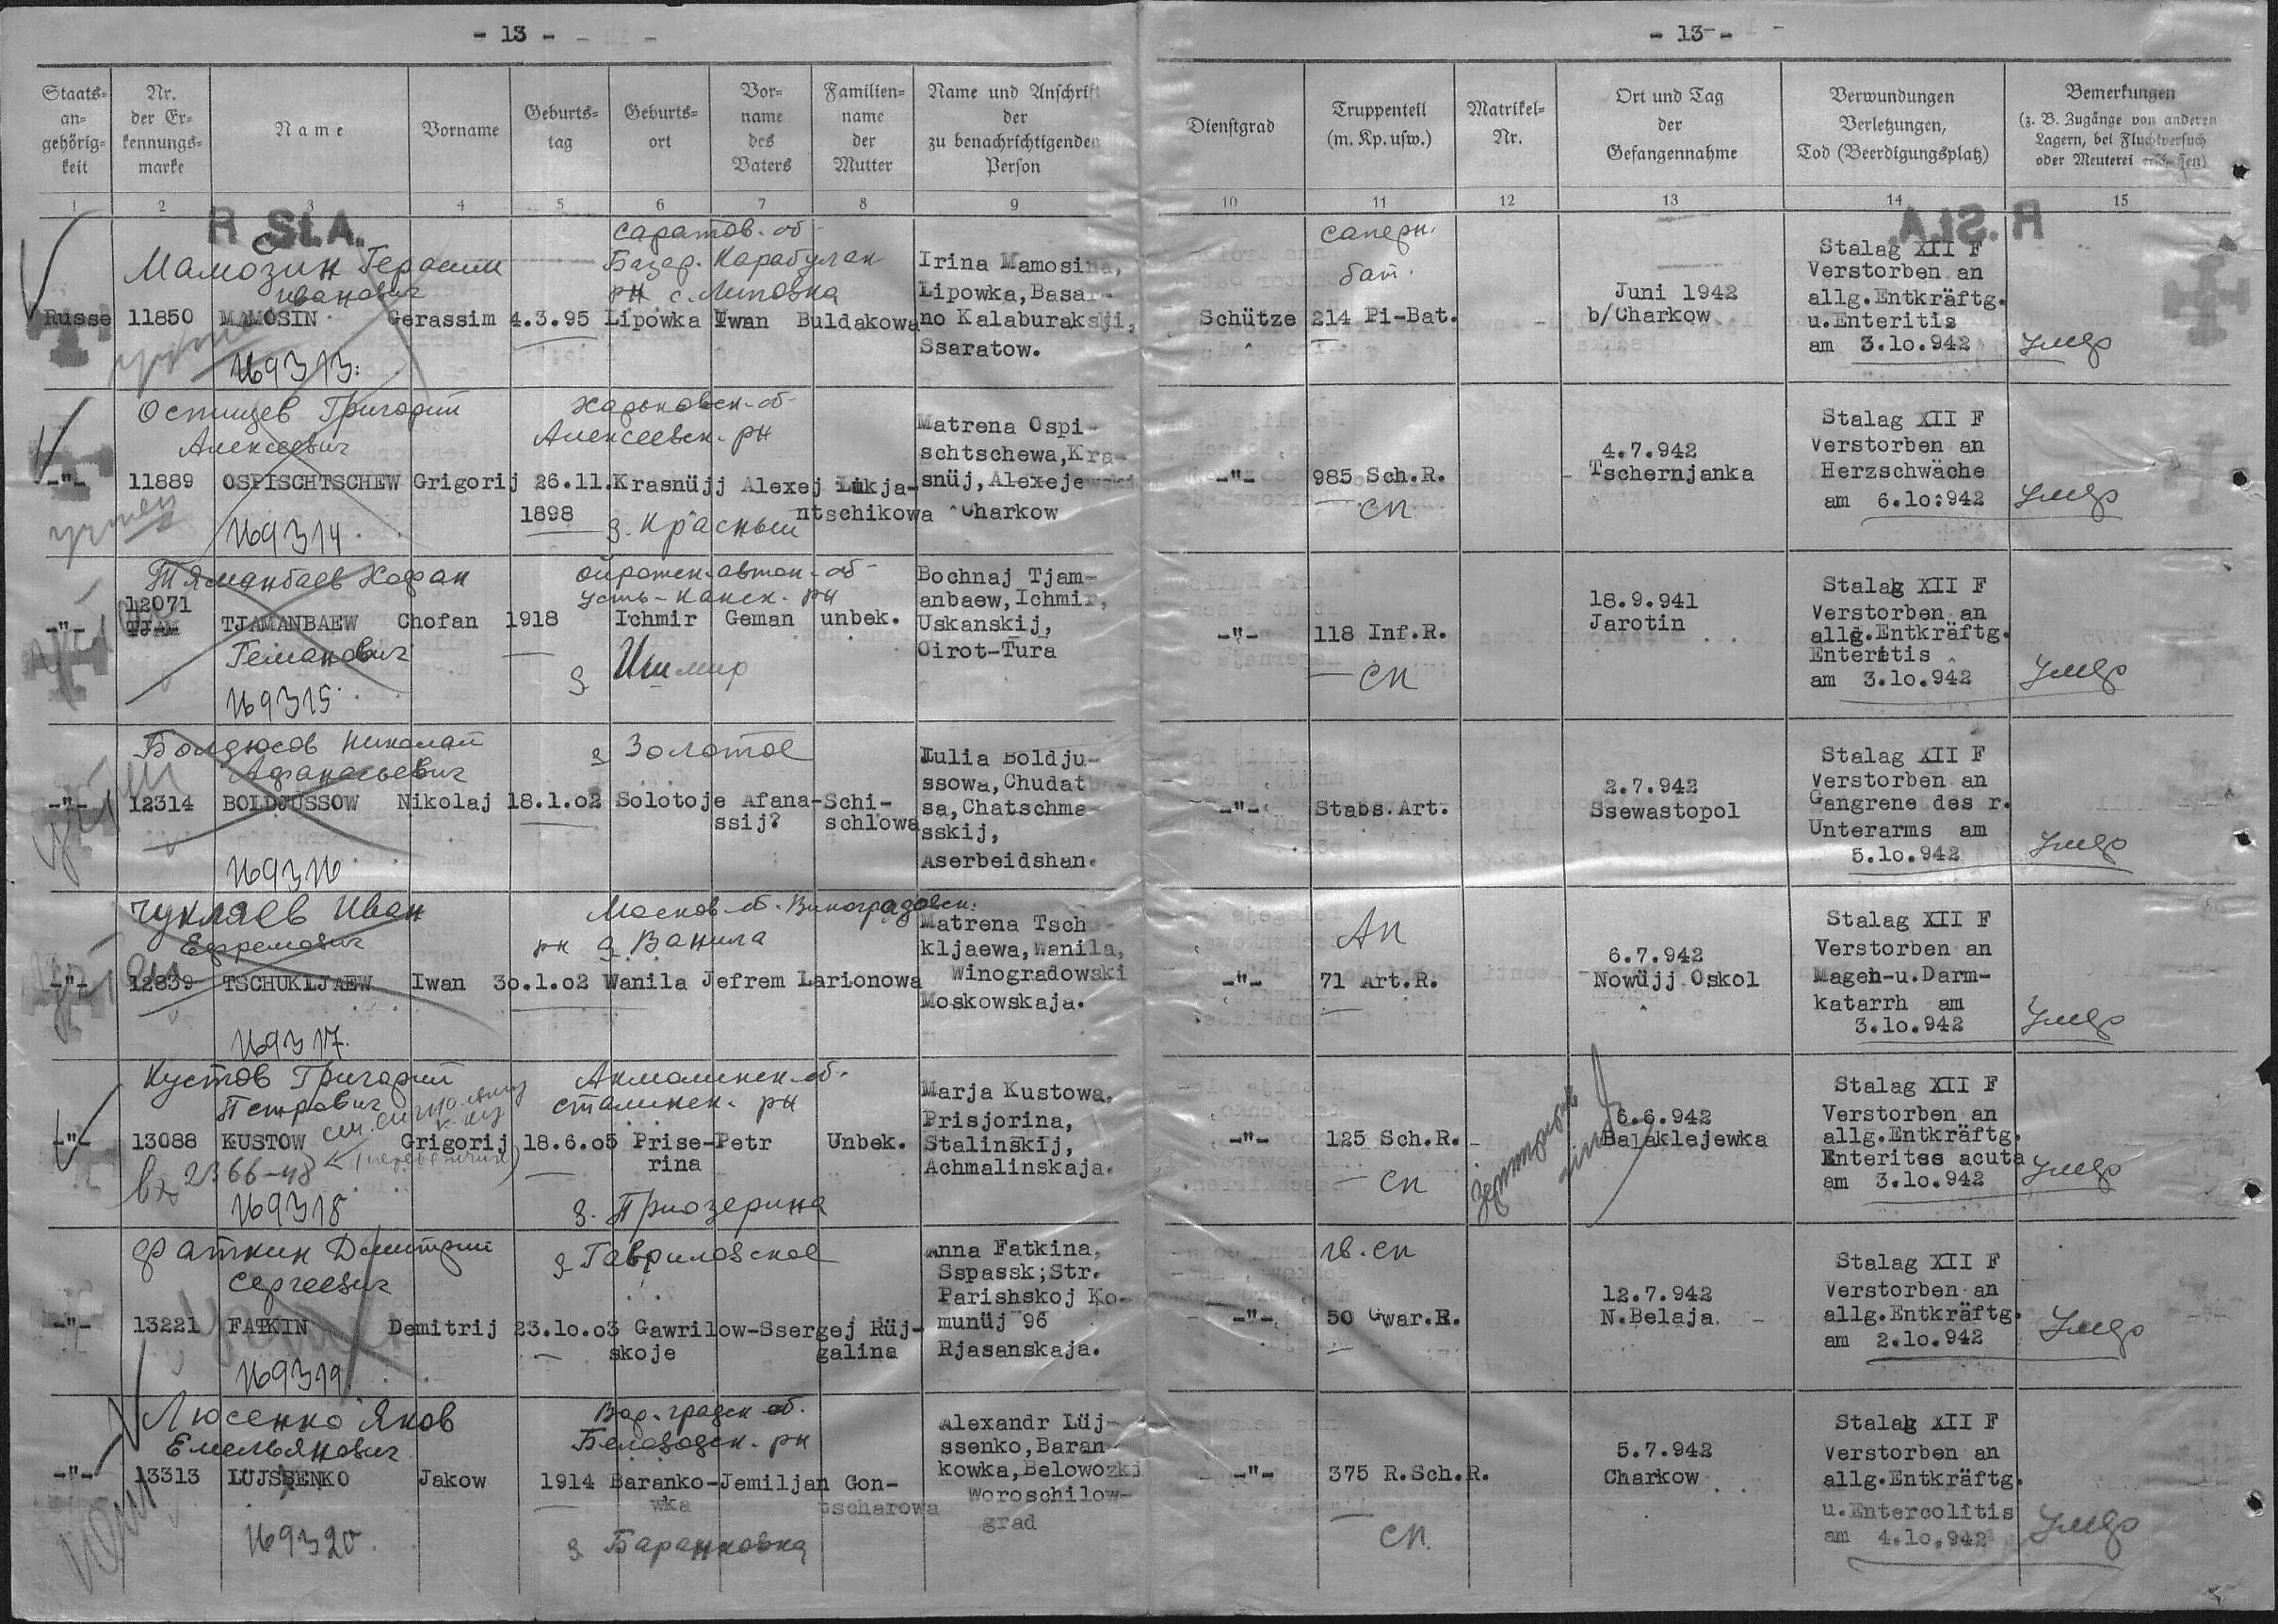 - 13 -
- 13 -
Staats-
an-
gehörig-
keit
Nr.
der Er-
kennungs-
marke
Name
Vorname
Geburts-
tag
Geburts-
ort
Vor-
name
des
Vaters
Familien-
name
der
Mutter
Name und Anschrift
der
zu benachrichtigenden
Person
Dienstgrad
Truppenteil
(m. Kp. usw.)
Matrikel-
Nr.
Ort und Tag
der
Gefangennahme
Verwundungen
Verletzungen,
Tod (Beerdigungsplatz)
Bemerkungen
(z. B. Zugänge von anderen
Lagern, bei Fluchtversuch
oder Meuterei erschossen)
1 2 3 4 5 6 7 8 9 10 11 12 13 14 15
R. St. A.
R. St. A.
Мамозин Герасим
Иванович
саратов. об
Базар. Карабулак
рн с. Липовка
Russe 11850 MAMOSIN Gerassim 4.3.95 Lipowka Iwan Buldakowa
Irina Mamosina,
Lipowka, Basar-
no Kalaburakskji,
Ssaratow.
саперн.
бат.
Schütze 214 Pi-Bat. -
Juni 1942
b/Charkow
Stalag XII F
Verstorben an
allg.Entkräftg.
u.Enteritis
am 3.10.942
умер
169313.
Оспищев Григорий
Алексеевич
харьковск. об-
Алексеевск. рн
-"- 11889 OSPISCHTSCHEW Grigorij 26.11. Krasnüjj Alexej Lukja-
1898 ntschikowa
д. Красный
Matrena Ospi-
schtschewa, Kra-
snüj, Alexejewski
Charkow
-"- 985 Sch.R. -
сп
4.7.942
Tschernjanka
Stalag XII F
Verstorben an
Herzschwäche
am 6.10.942
умер
169314.
Тяманбаев Хофан
ойротск. автон. об-
усть-канск. рн
12071
-"- TJAM TJAMANBAEW Chofan 1918 Ichmir Geman unbek.
Геманович
д Ишмир
Bochnaj Tjam-
anbaew, Ichmir,
Uskanskij,
Oirot-Tura
-"- 118 Inf.R.
сп
18.9.941
Jarotin
Stalag XII F
Verstorben an
allg.Entkräftg.
Enteritis
am 3.10.942
умер
169315.
Болдюсов Николай
Афанасьевич
д Золотое
-"- 12314 BOLDJUSSOW Nikolaj 18.1.02 Solotoje Afana- Schi-
ssij? schlowa
Iulia Boldju-
ssowa, Chudat
sa, Chatschma-
sskij,
Aserbeidshan.
-"- Stabs.Art.
2.7.942
Ssewastopol
Stalag XII F
Verstorben an
Gangrene des r.
Unterarms am
5.10.942
умер
169316.
Чукляев Иван
Ефремович
Москов. об. Виноградовск.
рн д. Ванила
-"- 12839 TSCHUKLJAEW Iwan 30.1.02 Wanila Jefrem Larionowa
Matrena Tschu-
kljaewa, Wanila,
Winogradowski
Moskowskaja.
АП
-"- 71 Art.R.
6.7.942
Nowüjj Oskol
Stalag XII F
Verstorben an
Magen-u.Darm-
katarrh am
3.10.942
умер
169317.
Кустов Григорий
Петрович
Акмолинск. об.
сталинск. рн
-"- 13088 KUSTOW Grigorij 18.6.05 Prise- Petr Unbek.
rina
вх 2366-48
д. Приозерина
Marja Kustowa,
Prisjorina,
Stalinskij,
Achmalinskaja.
-"- 125 Sch.R. -
сп
6.6.942
Balaklejewka
Stalag XII F
Verstorben an
allg.Entkräftg.
Enteritss acuta
am 3.10.942
умер
169318
Фаткин Дмитрий
Сергеевич
д Гавриловское
-"- 13221 FATKIN Demitrij 23.10.03 Gawrilow- Ssergej Rüj-
skoje galina
Anna Fatkina,
Sspassk; Str.
Parishskoj Ko-
munüj 96
Rjasanskaja.
гв. сп
-"- 50 Gwar.R.
12.7.942
N.Belaja -
Stalag XII F
Verstorben an
allg.Entkräftg.
am 2.10.942
умер
169319
Люсенко Яков
Емельянович
Вор. градск об.
Беловодск. рн
-"- 13313 LUJSSENKO Jakow 1914 Baranko- Jemiljan Gon-
wka tscharowa
д Баранковка
Alexandr Lüj-
ssenko, Baran-
kowka, Belowozki
Woroschilow-
grad
-"- 375 R.Sch.R.
сп.
5.7.942
Charkow
Stalag XII F
Verstorben an
allg.Entkräftg.
u.Entercolitis
am 4.10.942
умер
169320.